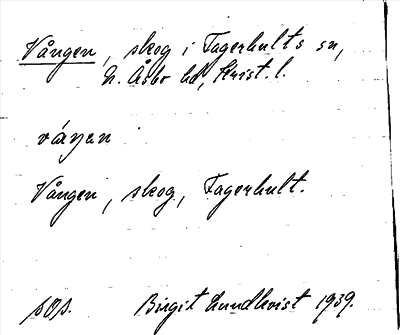 Vången, skog i Fagerhults sn,
N. Åsbo hd, Krist. l.
våŋen
Vången, skog, Fagerhult.
sOs. Birgit Lundkvist 1939.